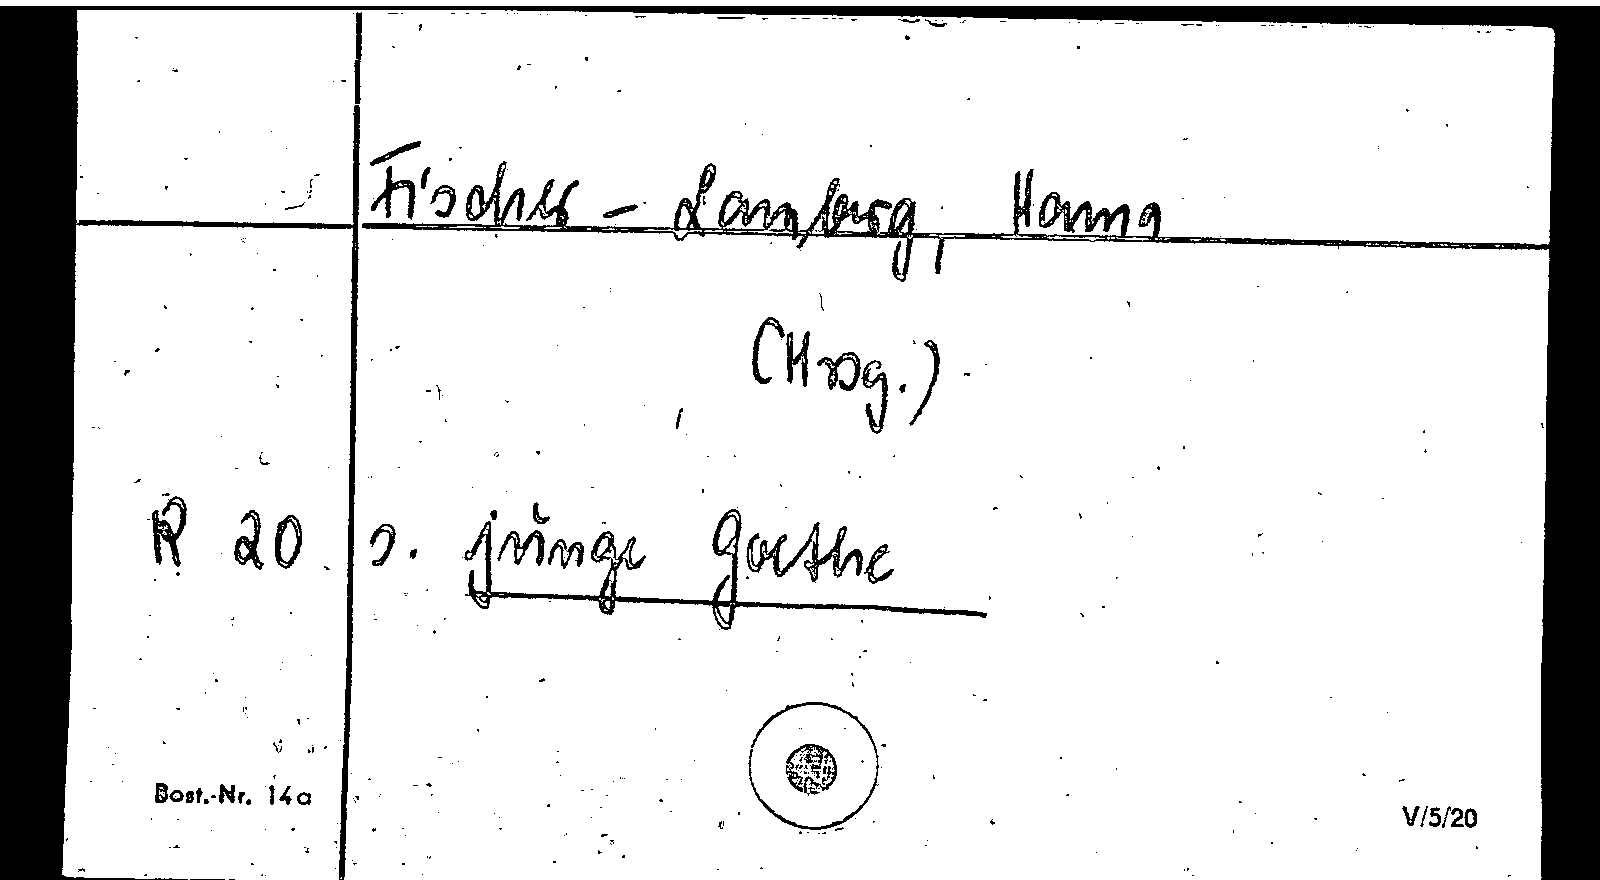 Fischer-Lamberg, Hanna
(Hrsg.)
R 20 s. junge Goethe
Best.-Nr. 14a
V/5/20